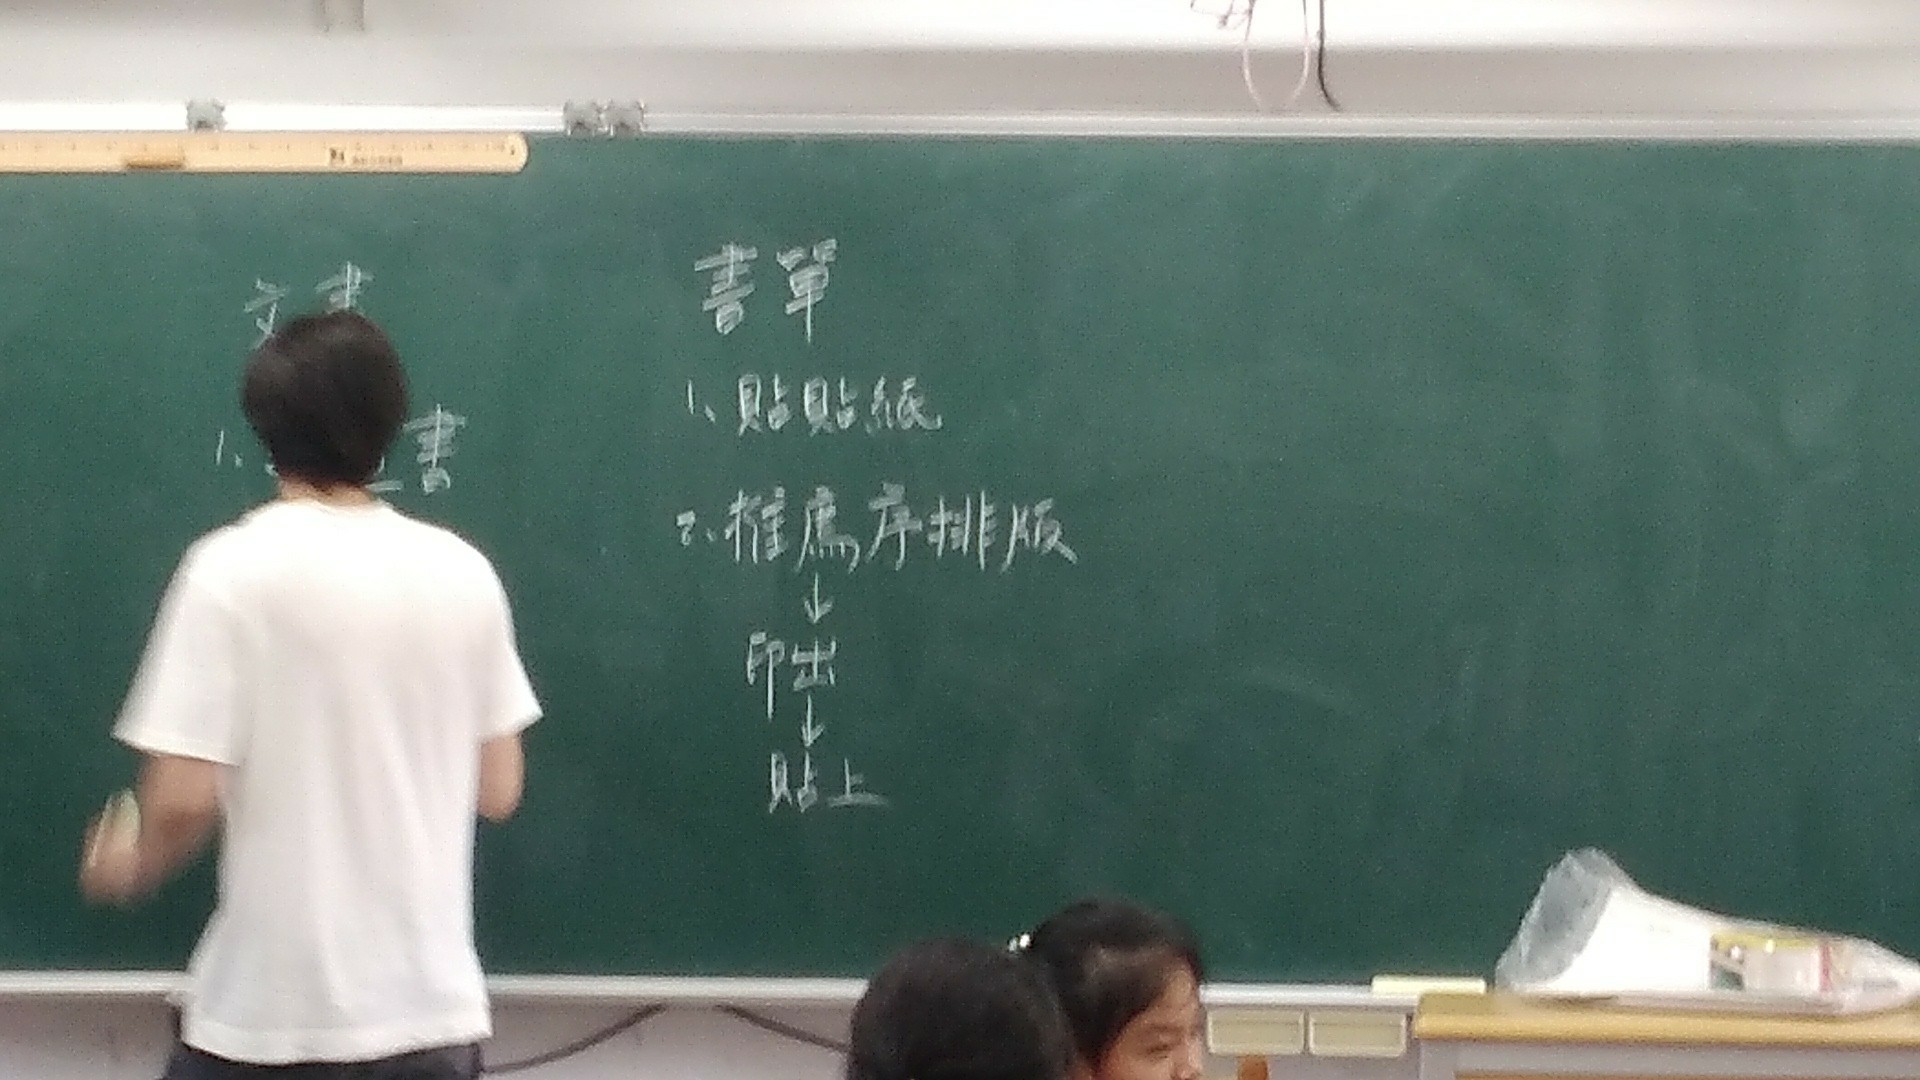 文書
1、書
書單
1、貼貼紙
2、推薦序排版
↓
印出
↓
貼上